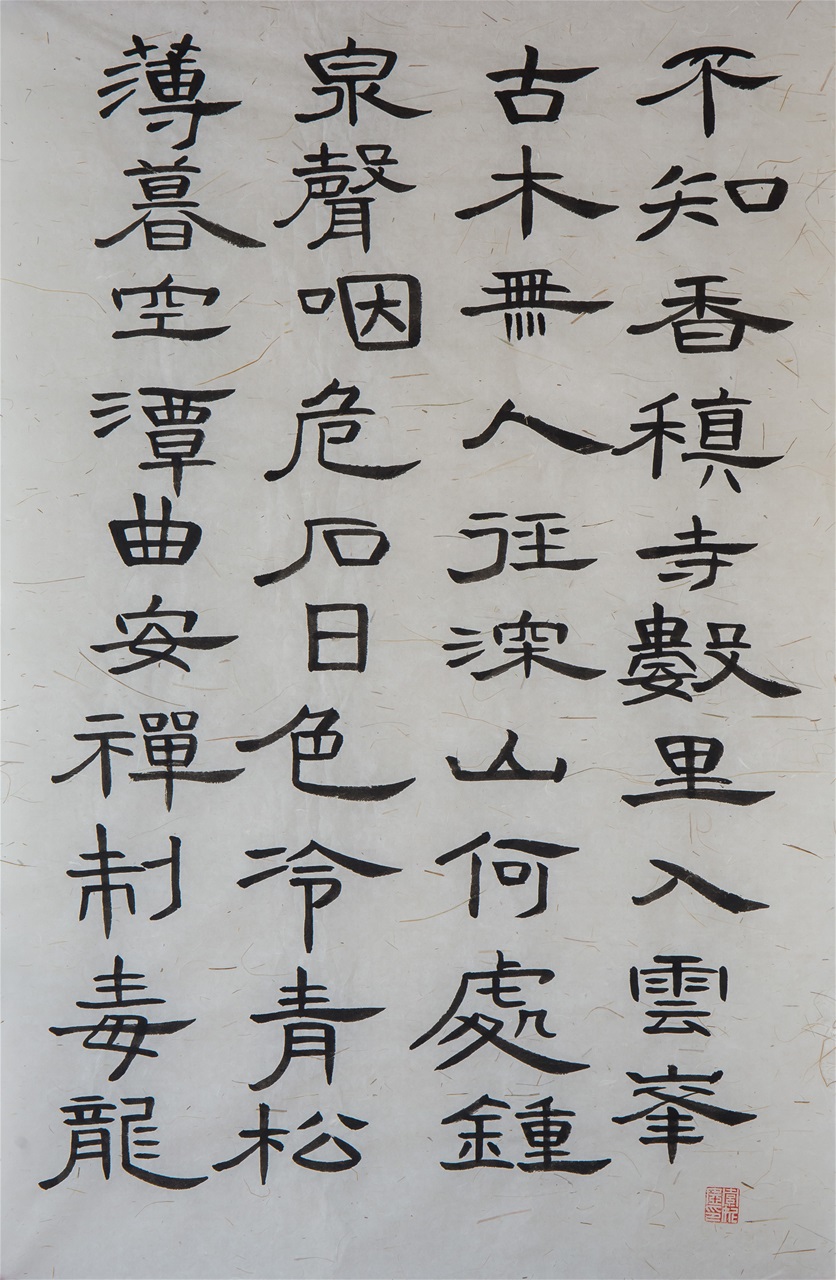 不知香稹寺數里入雲峯
古木無人徑深山何處鍾
泉聲咽危石日色冷青松
薄暮空潭曲安禪制毒龍